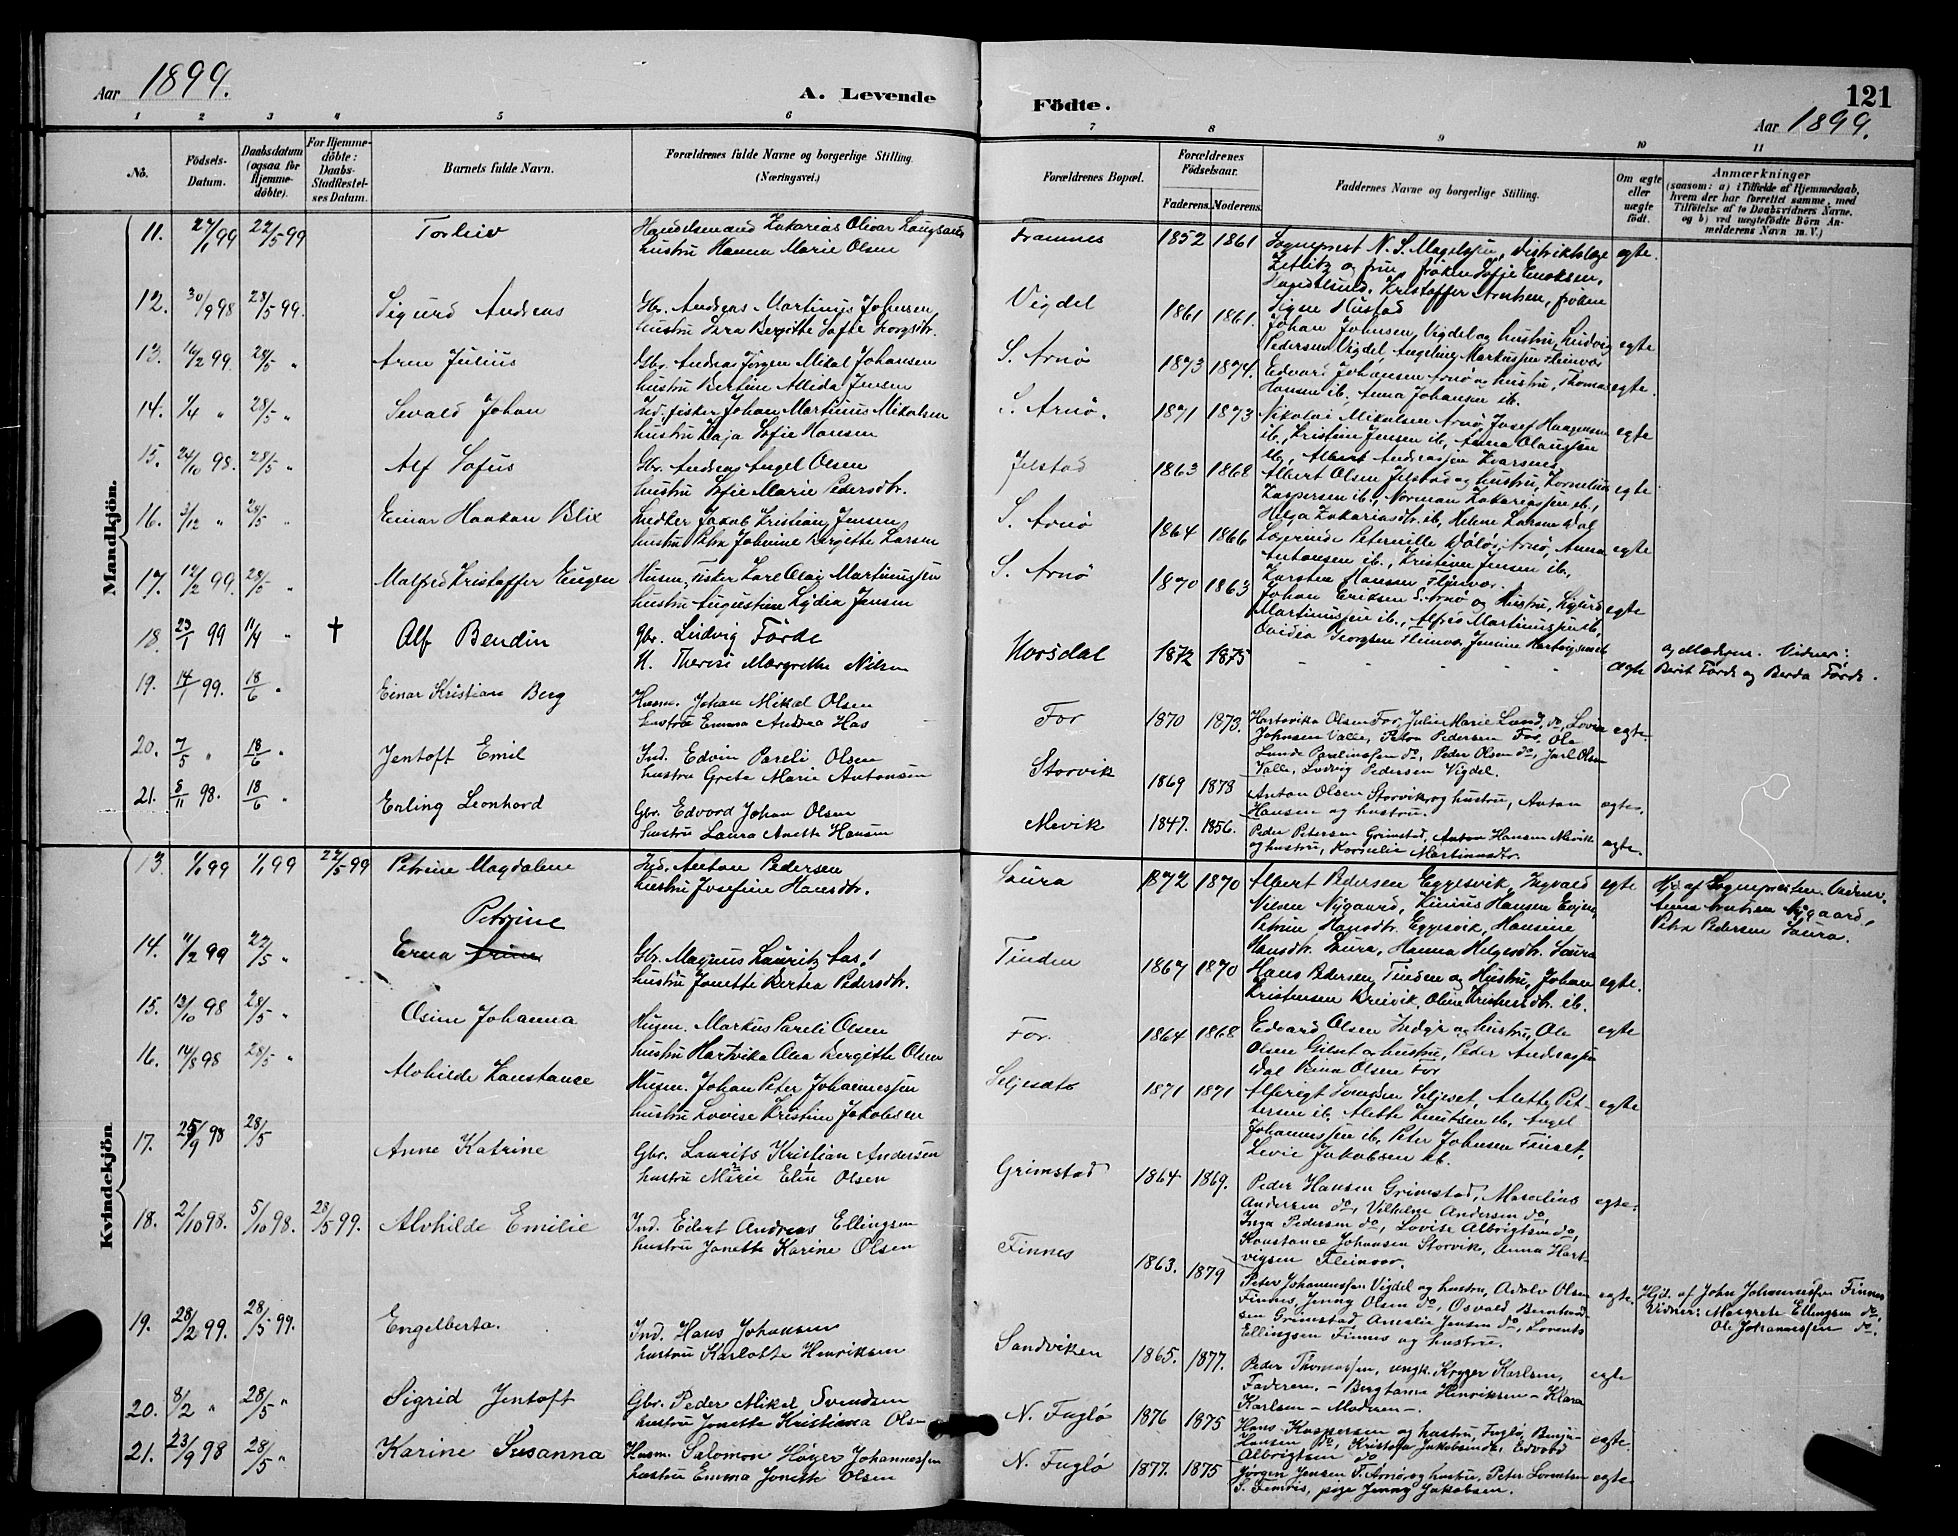 Aar 1899. A. Levende
Födte. 121
Aar 1899.
1 2 3 4 5 6 7 8 9 10 11
No.
Födsels-Datum.
Daabsdatum (ogsaa for Hjemmedöbte).
For Hjemmedöbte: Daabs-Stadfæstelses Datum.
Barnets fulde Navn.
Forældrenes fulde Navne og borgerlige Stilling.
(Næringsvei.)
Forældrenes Bopæl.
Forældrenes Födselsaar.
Faderens. Moderens.
Faddernes Navne og borgerlige Stilling.
Om ægte eller uægte födt.
Anmærkninger
(saasom: a) i Tilfælde af Hjemmedaab, hvem der har forrettet samme, med Tilföielse af to Daabsvidners Navne, og b) ved uægtefödte Börn Anmelderens Navn m. V.)
Mandkjön.
11. 27/1 99 22/5 99 Torleiv Handelsmand Zakarias Olivar
hustru Hanna Marie Olsen Framnes 1852 1861 Sogneprest N. S. Magelssen, Distriktslæge
Zetlitz og frue, frøken Sofie Enoksen,
Kristoffer Arntsen, frøken
Signe Hustad egte.
12. 30/9 98 28/5 99. Sigurd Andreas Gbr. Andreas Martinus Johnsen
hustru Sara Bergitte Sofie Vigdel 1861 1861. Johan Johnsen, Vigdel og hustru, Ludvig
Pedersen Vigdel, Angeline Markussen Fleinvær egte
13. 16/2 99. 28/5 " Arne Julius Gbr. Andreas Jørgen Mikal Johansen
hustru Bertine Alida Jensen S. Arnø 1873 1874. Edvard Johansen Arnø og hustru, Thomas
Hansen ib. Anna Johansen ib. egte
14. 1/4 " 28/5 " Sevald Johan Ind. fisker Johan Martinus Mikalsen
hustru Kaja Sofie Hansen S. Arnø. 1871 1873 Nikolai Mikalsen Arnø, Josef Haagensen
ib., Kristine Jensen ib., Anna Olaussen
ib., Albert Andreassen egte
15. 24/10 98. 28/5 " Alf Sofus Gbr. Andreas Angel Olsen
hustru Sofie Marie Pedersdtr. Jelstad 1863 1868 Albert Olsen Jelstad og hustru, Kornelius
Kaspersen ib., Norman Zakariassen ib.,
Helga Zakariasdtr. ib, Helene Larsen egte
16. 3/12 " 28/5 " Einar Haakon Blix Snedker Jakob Kristian Jensen,
hustru Petra Johnine Bergette Larsen S. Arnø 1864 1866 Lærerinde Peternille Arnø, Anna
Antonsen ib., Kristine Jensen ib.,
Karsten Hansen Fleinvær. egte
17. 12/2 99. 28/5 " Malfred Kristoffer Eugen Husm. Fisker Karl Olaij Martinussen
hustru Augustine Lydia Jensen S. Arnø 1870 1863 Johan Eriksen S. Arnø og Hustru, Sigurd
Martinussen ib., Alfred Martinussen ib,
Ovidia Georgsen Fleinvær, Jensine egte
18. 23/1 99 11/4 " † Alf Bendin Gbr. Ludvig Förde
H. Therese Margrethe Nilsen Horsdal 1872 1875 " " " " ægte og Moderen. Vidner:
Berit Förde og Berda Förde.
19. 14/1 99. 18/6 " Einar Kristian Berg Husm. Johan Mikal Olsen
hustru Emma Andrea Has For 1870 1873. Hartvika Olsen For, Julie Marie Lund do, Lovise
Johnsen Valle, Peter Pedersen For, Ole
Lunde Parelinssen do, Peder Olsen do, Jarl Olsen
Valle, Ludvig Pedersen Vigdel. egte
20. 7/5 " 18/6 " Jentoft Emil Ind. Edvin Pareli Olsen
hustru Grete Marie Antonsen Storvik 1869 1878 Anton Olsen Storvik og hustru, Anton
Hansen og hustru. egte.
21. 8/11 98. 18/6 " Erling Leonhard Gbr. Edvard Johan Olsen
hustru Laura Anette Hansen Mevik 1847. 1856. Peder Petersen Grimstad, Anton Hansen Mevik
og hustru, Kornelie Martinusdtr. egte.
Kvindekjön
13. 1/1 99 1/1 99 22/5 99 Petrine Magdalene Ind. Anton Pedersen
hustru Josefine Hansdtr. Saura 1872 1870 Albert Pedersen Eggesvik, Ingvald
Nilsen Nygaard, Linius Hansen Evjen,
Petrine Hansdtr. Eggesvik, Hansine
Hansdtr. Saura, Hanna Helgesdtr. Saura egte Hj. af Sognepresten. Vidner:
Anna Arntsen Nygaard,
Petra Pedersen Saura.
14. 11/2 99 22/5 " Erna Petrine Gbr. Magnus Lauritz
hustru Jonette Bertea Pedersdtr. Tinden 1867 1870 Hans Pedersen Tinden og Hustru, Johan
Kristensen Breivik, Oline Kristensdtr. ib. egte.
15. 13/10 98 28/5 " Osine Johanna Husm. Markus Pareli Olsen
hustru Hartvika Olea Bergitte Olsen For. 1864 1868 Edvard Olsen Indyr og hustru, Ole
Olsen Gilset og hustru, Peder Andreassen
Dal Olsen For egte
16. 14/8 98 28/5 " Alvhilde Konstance Husm. Johan Peter Johannessen
hustru Lovise Kristine Jakobsen Seljeset 1871 1871 Albrigt Seljeset, Alette Petersen
ib. Alette Knutsen ib. Angel
Johannessen ib. Peter Johnsen Finset,
Jakobsen ib. egte
17. 25/9 98 28/5 Anne Katrine Gbr. Laurits Kristian Andersen
hustru Marie Elen Olsen Grimstad 1864 1869. Peder Hansen Grimstad, Maselius
Andersen do, Vilhelm Andersen do,
Inga Pedersen do, Lovise Albrigtsen do,
Konstance Johansen Storvik, Anna Hartvigsen
Fleinvær. egte.
18. 2/10 98. 5/10 98. 28/5 99. Alvhilde Emilie Ind. Eilert Andreas Ellingsen
hustru Jonette Karine Olsen Finnes 1863. 1879 Peter Johannessen Vigdel og hustru, Adolv Olsen
Finnes, Jenny Olsen do, Osvald Berntsen
Grimstad Amalie Jensen do, Lorents
Ellingsen Finnes og hustru. egte. Hjd. af John Johannessen Finnes
Vidner: Margrete Ellingsen do.
Ole Johannessen do.
19. 28/2 99. 28/5 99. Engelberta. Ind. Hans Johansen
hustru Karlotte Henriksen Sandviken 1865. 1877. Peder Thomassen, ungk. Krøger Karlsen,
Faderen. – Bergtane Henriksen – Klara
Karlsen – Moderen – egte
20. 8/2 " 28/5 " Sigrid Jentoft Gbr. Peder Mikal Svendsen
hustru Jonette Kristiana Olsen N. Fuglø 1876 1875 Hans Kaspersen og hustru, Fuglø, Benja
Hansen do, Kristofa Jakobsen do, Edvard
Albrigtsen do egte.
21. 23/9 98 28/5 " Karine Susanna Husm. Salomon Høyer Johannessen
hustru Emma Jonette Olsen N. Fuglø 1877. 1875 Jørgen Jensen S. Arnø og hustru, Peter Lorentsen
S. pige Jenny Jakobsen. egte